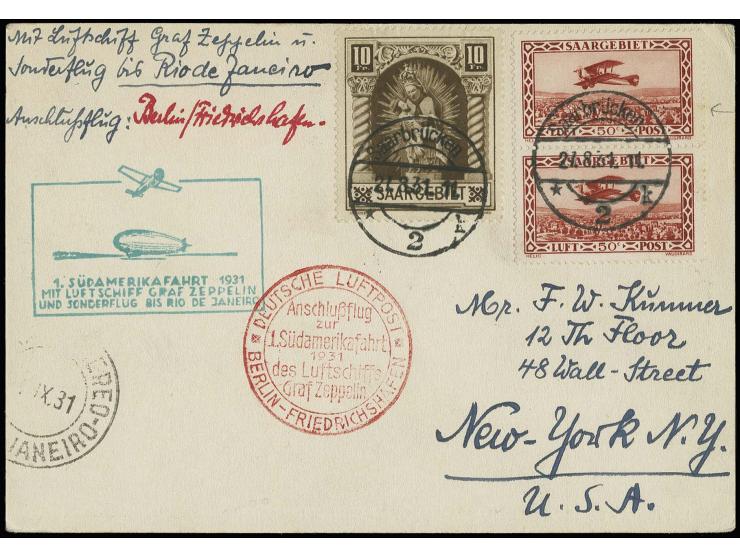 Mit Luftschiff Graf Zeppelin u.
Sonderflug bis Rio de Janeiro
Anschlußflug: Berlin/Friedrichshafen.
10 Fr. 10 Fr.
SAARGEBIET
Saarbrücken
21.8.31. 11.
* 2 k
SAARGEBIET
LUFT 50 POST
HELIO VAUGIRARD
SAARGEBIET
LUFT 50 POST
HELIO VAUGIRARD
Saarbrücken
21.8.31. 11.
* 2 k
1. SÜDAMERIKAFAHRT 1931
MIT LUFTSCHIFF GRAF ZEPPELIN
UND SONDERFLUG BIS RIO DE JANEIRO
DEUTSCHE LUFTPOST
Anschlußflug
zur
1. Südamerikafahrt
1931
des Luftschiffs
Graf Zeppelin
BERLIN-FRIEDRICHSHAFEN
IX.31
JANEIRO
Mr. F. W. Kummer
12 Th Floor
48 Wall-Street
New-York N.Y.
U.S.A.